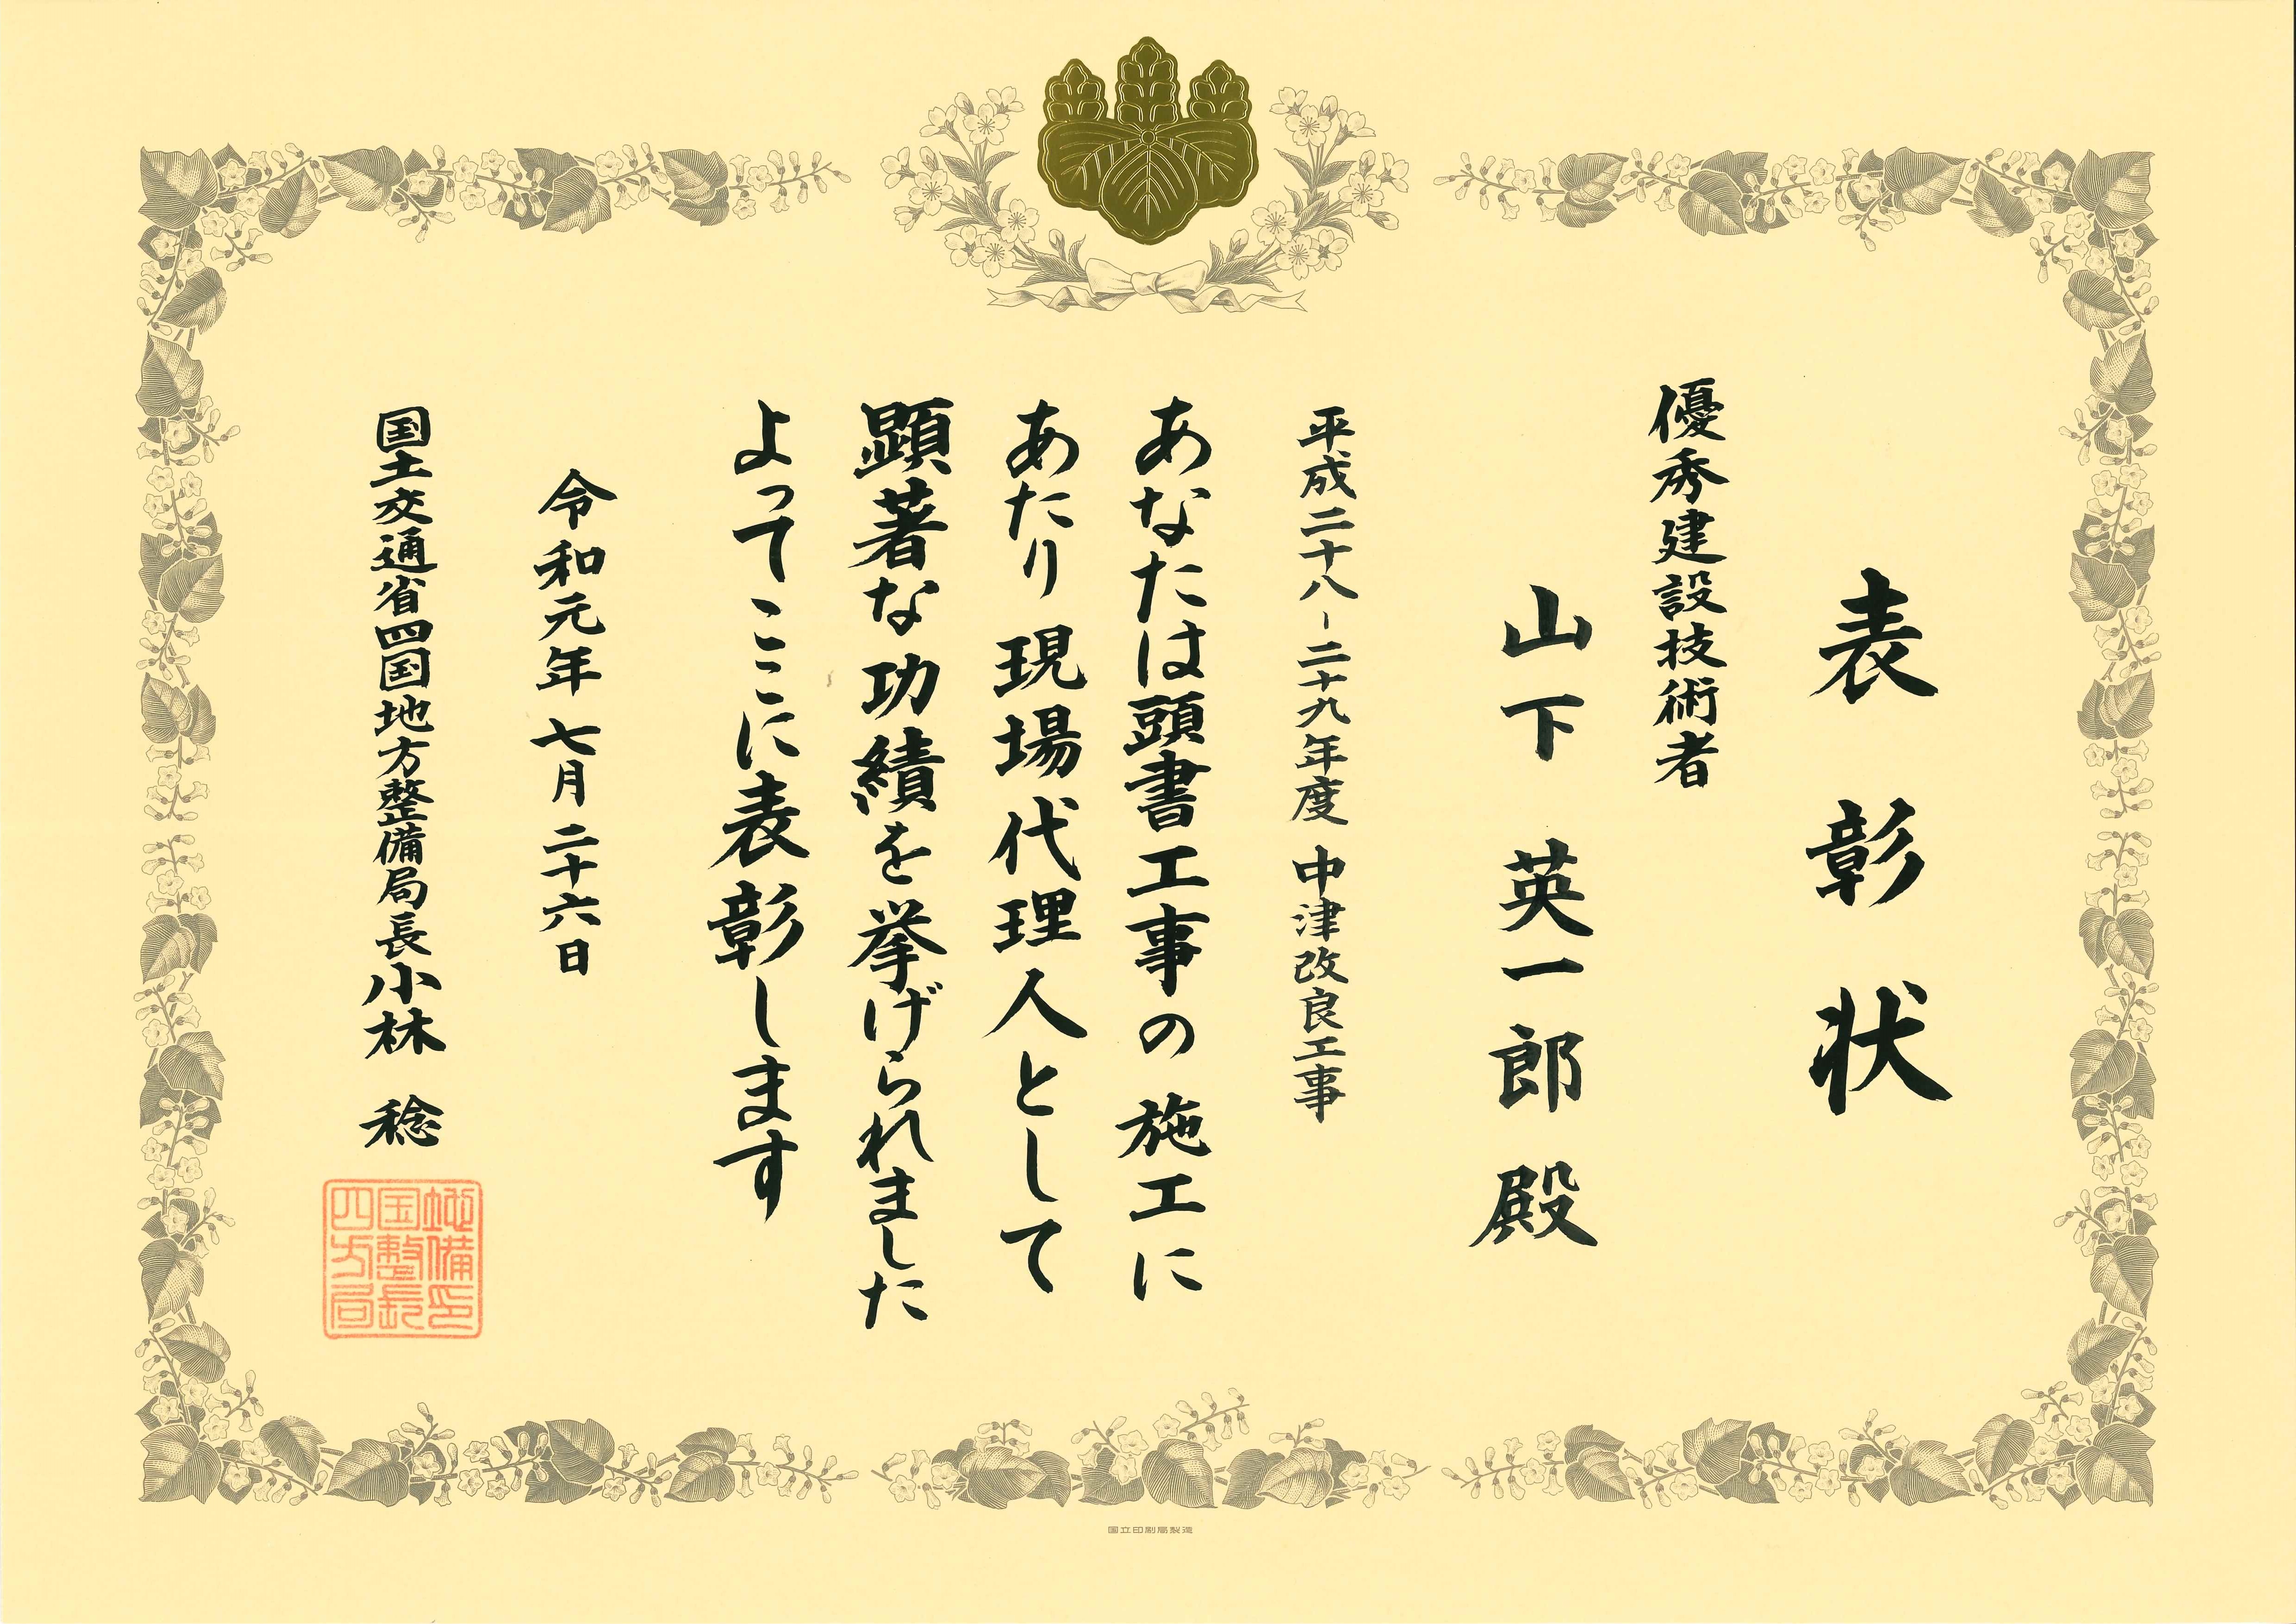 表彰状
優秀建設技術者
山下英一郎殿
平成二十八-二十九年度 中津改良工事
あなたは頭書工事の施工に
あたり現場代理人として
顕著な功績を挙げられました
よってここに表彰します
令和元年七月二十六日
国土交通省四国地方整備局長小林 稔
地備印
国整長
四方局
国立印刷局製造